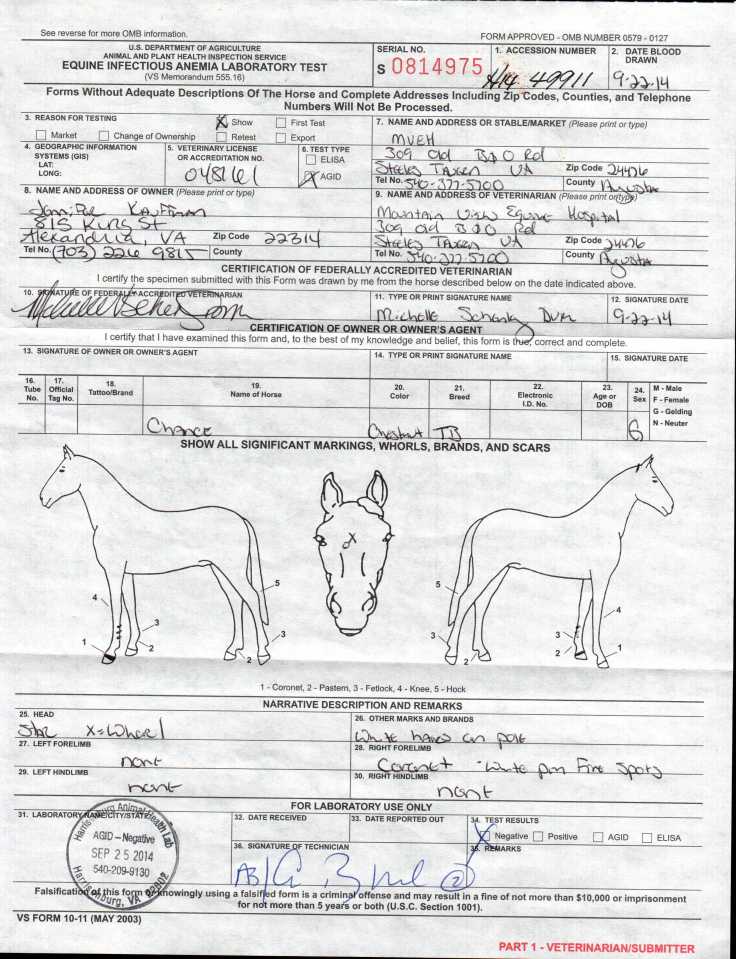 See reverse for more OMB information.
FORM APPROVED - OMB NUMBER 0579 - 0127
U.S. DEPARTMENT OF AGRICULTURE
ANIMAL AND PLANT HEALTH INSPECTION SERVICE
EQUINE INFECTIOUS ANEMIA LABORATORY TEST
(VS Memorandum 555.16)
SERIAL NO.
S 0814975
1. ACCESSION NUMBER
H14 49911
2. DATE BLOOD DRAWN
9-22-14
Forms Without Adequate Descriptions Of The Horse and Complete Addresses Including Zip Codes, Counties, and Telephone
Numbers Will Not Be Processed.
3. REASON FOR TESTING
X Show
First Test
Market
Change of Ownership
Retest
Export
4. GEOGRAPHIC INFORMATION SYSTEMS (GIS)
LAT:
LONG:
5. VETERINARY LICENSE OR ACCREDITATION NO.
048161
6. TEST TYPE
ELISA
X AGID
7. NAME AND ADDRESS OR STABLE/MARKET (Please print or type)
MVEH
309 Old B&O Rd
Steeles Tavern VA
Zip Code 24476
Tel No. 540-377-5700
County Augusta
8. NAME AND ADDRESS OF OWNER (Please print or type)
Kauffman
815 King St
Alexandria, VA
Zip Code 22314
Tel No. (703) 226 9815
County
9. NAME AND ADDRESS OF VETERINARIAN (Please print or type)
Mountain View Equine Hospital
309 Old B&O Rd
Steeles Tavern VA
Zip Code 24476
Tel No. 540-377-5700
County Augusta
CERTIFICATION OF FEDERALLY ACCREDITED VETERINARIAN
I certify the specimen submitted with this Form was drawn by me from the horse described below on the date indicated above.
10. SIGNATURE OF FEDERALLY ACCREDITED VETERINARIAN
11. TYPE OR PRINT SIGNATURE NAME
Michelle DVM
12. SIGNATURE DATE
9-22-14
CERTIFICATION OF OWNER OR OWNER'S AGENT
I certify that I have examined this form and, to the best of my knowledge and belief, this form is true, correct and complete.
13. SIGNATURE OF OWNER OR OWNER'S AGENT
14. TYPE OR PRINT SIGNATURE NAME
15. SIGNATURE DATE
16. Tube No.
17. Official Tag No.
18. Tattoo/Brand
19. Name of Horse
20. Color
21. Breed
22. Electronic I.D. No.
23. Age or DOB
24. Sex
M - Male
F - Female
G - Gelding
N - Neuter
Chance
Chestnut
TB
G
SHOW ALL SIGNIFICANT MARKINGS, WHORLS, BRANDS, AND SCARS
X
5
5
4
4
3
3
3
3
1
2
2
2
2
1
1 - Coronet, 2 - Pastern, 3 - Fetlock, 4 - Knee, 5 - Hock
NARRATIVE DESCRIPTION AND REMARKS
25. HEAD
Star X=Whorl
26. OTHER MARKS AND BRANDS
White hairs on pole
27. LEFT FORELIMB
none
28. RIGHT FORELIMB
Coronet - White pin Fire Spots
29. LEFT HINDLIMB
none
30. RIGHT HINDLIMB
none
FOR LABORATORY USE ONLY
31. LABORATORY NAME/CITY/STATE
Harrisonburg Animal Health Lab
AGID - Negative
SEP 25 2014
540-209-9130
Harrisonburg, VA 22802
32. DATE RECEIVED
33. DATE REPORTED OUT
34. TEST RESULTS
X Negative
Positive
AGID
ELISA
36. SIGNATURE OF TECHNICIAN
AB/
2
35. REMARKS
Falsification of this form or knowingly using a falsified form is a criminal offense and may result in a fine of not more than $10,000 or imprisonment
for not more than 5 years or both (U.S.C. Section 1001).
VS FORM 10-11 (MAY 2003)
PART 1 - VETERINARIAN/SUBMITTER